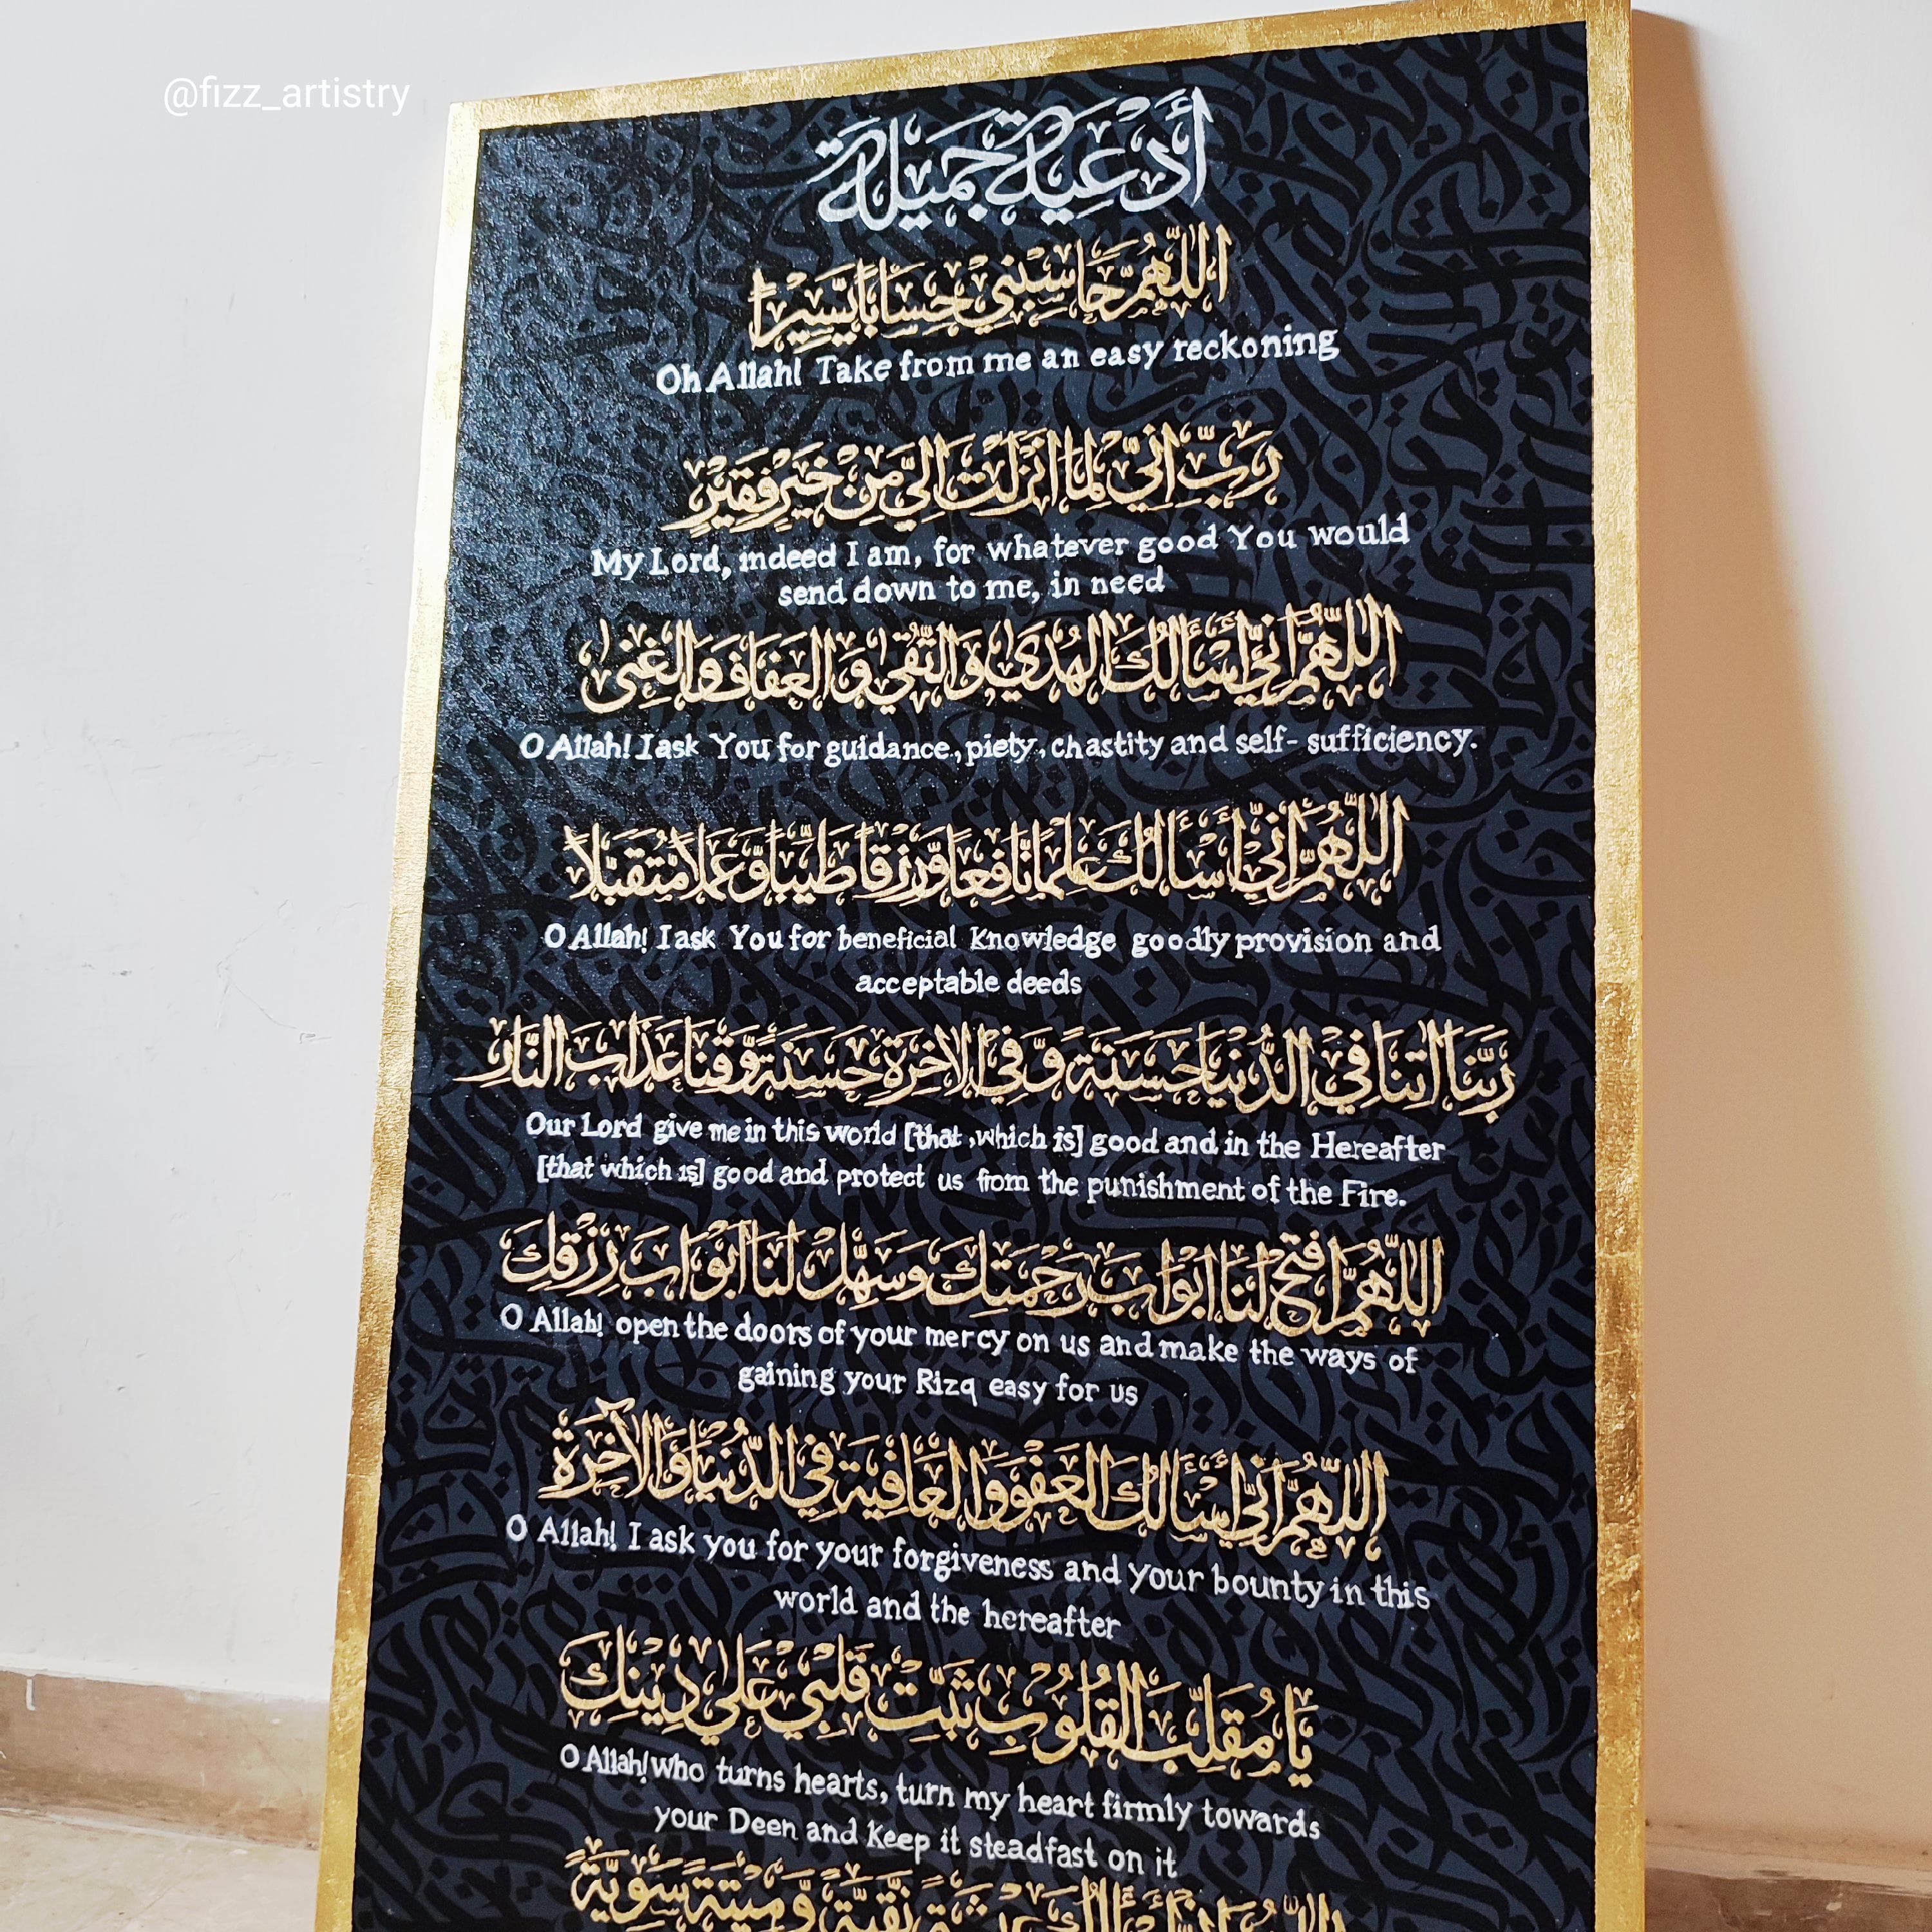 @fizz_artistry
أَدْعِيَة جَمِيلَة
اَللّٰهُمَّ حَاسِبْنِي حِسَابًا يَّسِيْرًا
Oh Allah! Take from me an easy reckoning
رَبِّ اِنِّيْ لِمَا اَنْزَلْتَ اِلَيَّ مِنْ خَيْرٍ فَقِيْرٌ
My Lord, indeed I am, for whatever good You would
send down to me, in need
اَللّٰهُمَّ اِنِّيْ أَسْأَلُكَ الْهُدٰى وَالتُّقٰى وَالْعَفَافَ وَالْغِنٰى
O Allah! I ask You for guidance, piety, chastity and self- sufficiency.
اَللّٰهُمَّ اِنِّيْ أَسْأَلُكَ عِلْمًا نَّافِعًا وَّرِزْقًا طَيِّبًا وَّعَمَلًا مُّتَقَبَّلًا
O Allah! I ask You for beneficial Knowledge goodly provision and
acceptable deeds
رَبَّنَا اٰتِنَا فِي الدُّنْيَا حَسَنَةً وَّفِي الْاٰخِرَةِ حَسَنَةً وَّقِنَا عَذَابَ النَّارِ
Our Lord give me in this world [that ,which is] good and in the Hereafter
[that which is] good and protect us from the punishment of the Fire.
اَللّٰهُمَّ افْتَحْ لَنَا اَبْوَابَ رَحْمَتِكَ وَسَهِّلْ لَنَا اَبْوَابَ رِزْقِكَ
O Allah! open the doors of your mercy on us and make the ways of
gaining your Rizq easy for us
اَللّٰهُمَّ اِنِّيْ أَسْأَلُكَ الْعَفْوَ وَالْعَافِيَةَ فِي الدُّنْيَا وَالْآخِرَةِ
O Allah! I ask you for your forgiveness and your bounty in this
world and the hereafter
يَا مُقَلِّبَ الْقُلُوْبِ ثَبِّتْ قَلْبِيْ عَلٰي دِيْنِكَ
O Allah! who turns hearts, turn my heart firmly towards
your Deen and Keep it steadfast on it
نَقِيَّةً وَّمِيْتَةً سَوِيَّةً